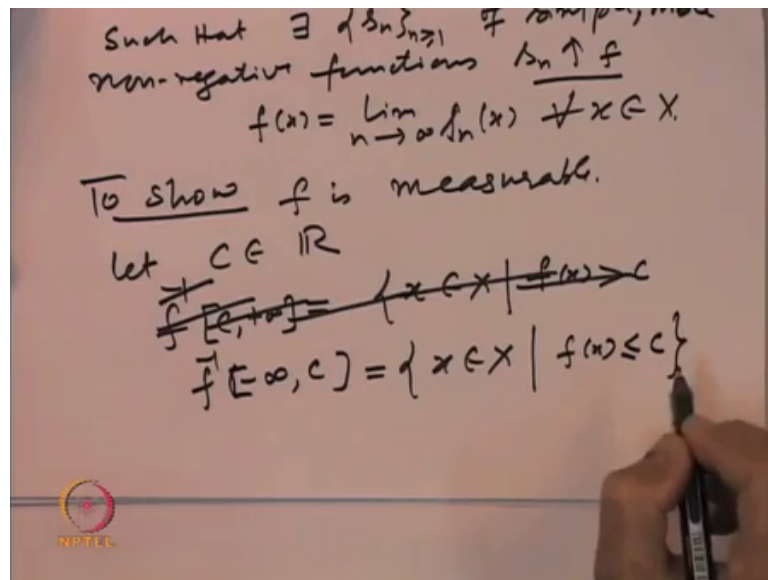 Such that ∃ {s_n}_{n≥1} of
non-negative functions s_n ↑ f
f(x) = lim_{n→∞} s_n(x) ∀ x ∈ X.
To show f is measurable.
let C ∈ ℝ
f^{-1}[C, +∞] = {x ∈ X | f(x) > C
f^{-1}[-∞, C] = {x ∈ X | f(x) ≤ C}
NPTEL